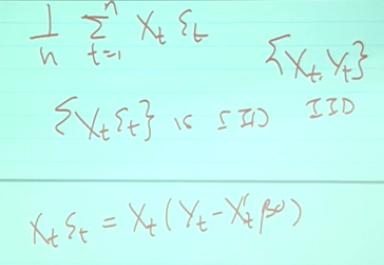 1/n Σ_{t=1}^{n} X_t ε_t
{X_t, Y_t}
{X_t ε_t} is IID IID
X_t ε_t = X_t (Y_t - X_t' β⁰)